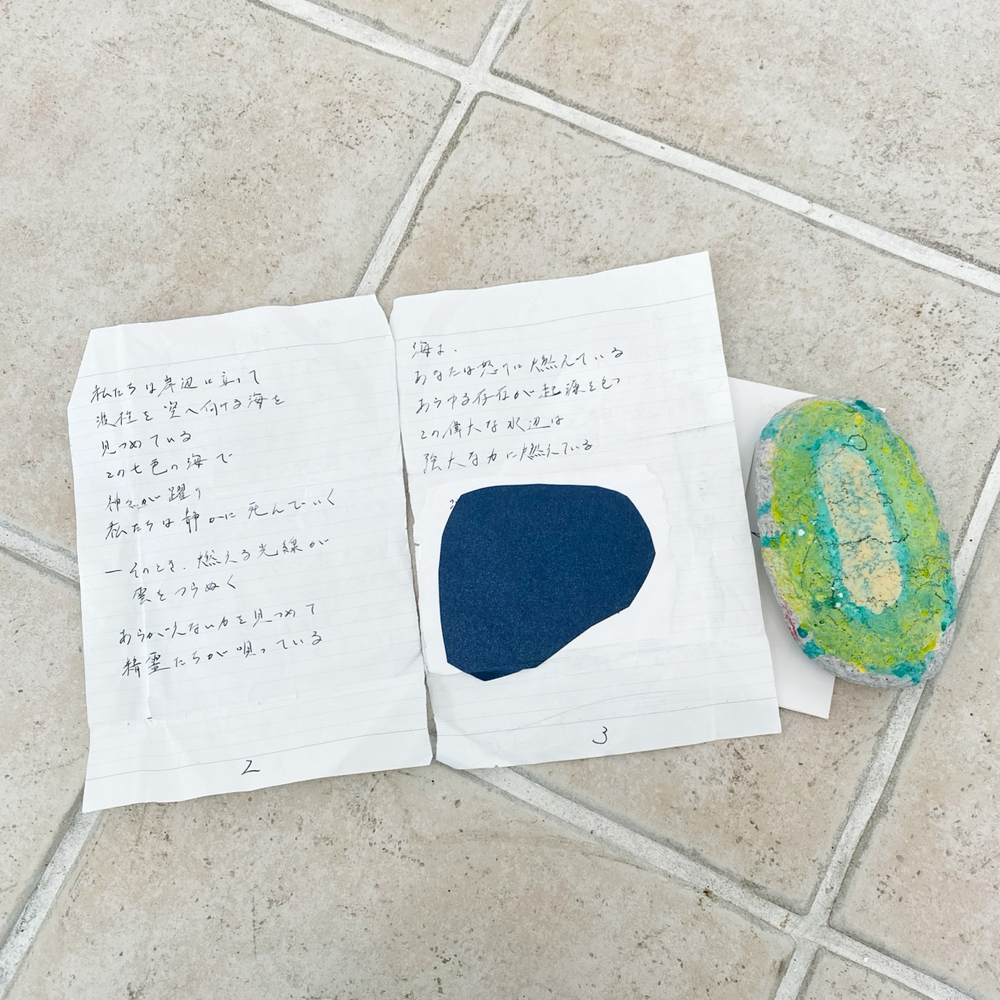 私たちは岸辺に立って
波柱を空へ向ける海を
見つめている
この七色の海で
神々が躍り
私たちは静かに死んでいく
ーそのとき、燃える光線が
雲をつらぬく
あらがえない力を見つめて
精霊たちが唄っている
2
海よ、
あなたは怒りに燃えている
あらゆる存在が起源をもつ
この偉大な水辺は
強大な力に燃えている
3